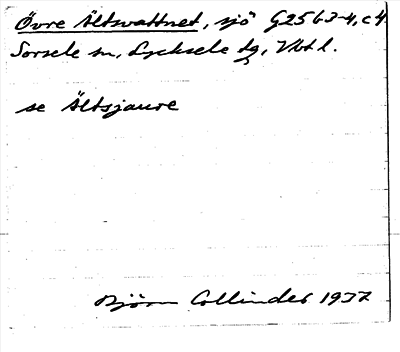 Övre Ältsvattnet, sjö G25 b 3-4, c 4
Sorsele sn, Lycksele tg, Vbt l.
se Ältsjaure
Björn Collinder 1937